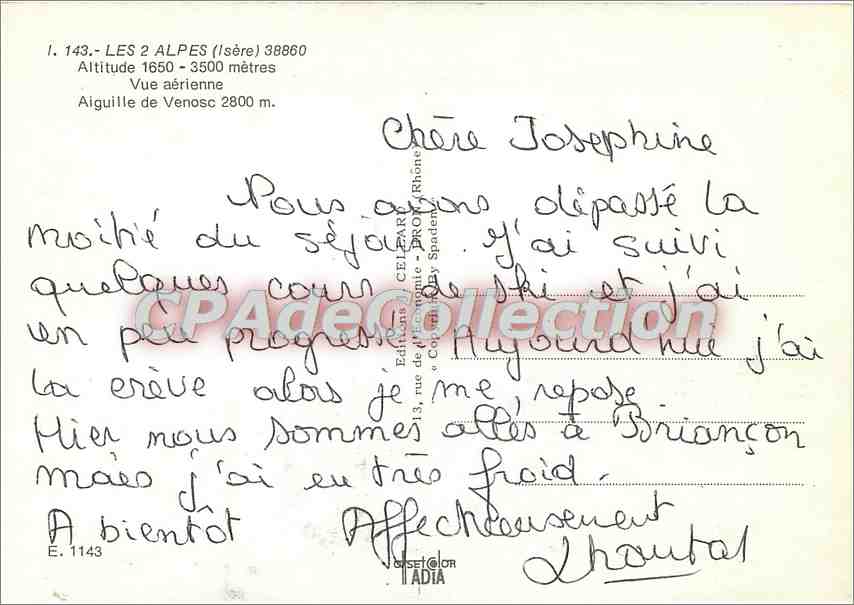 I. 143.- LES 2 ALPES (Isère) 38860
Altitude 1650 - 3500 mètres
Vue aérienne
Aiguille de Venosc 2800 m.
Chère Josephine
Nous avons dépassé la
moitié du séjour. J'ai suivi
quelques cours de ski et j'ai
un peu progressé. Aujourd'hui j'ai
la crève alors je me repose
Hier nous sommes allés à Briançon
mais j'ai eu très froid.
A bientôt Affectueusement
E. 1143
Editions J. CELLARD
13, rue de l'Economie - BRON (Rhône)
Copyright By Spadem
CPAdeCollection
OFFSETCOLOR
IADIA